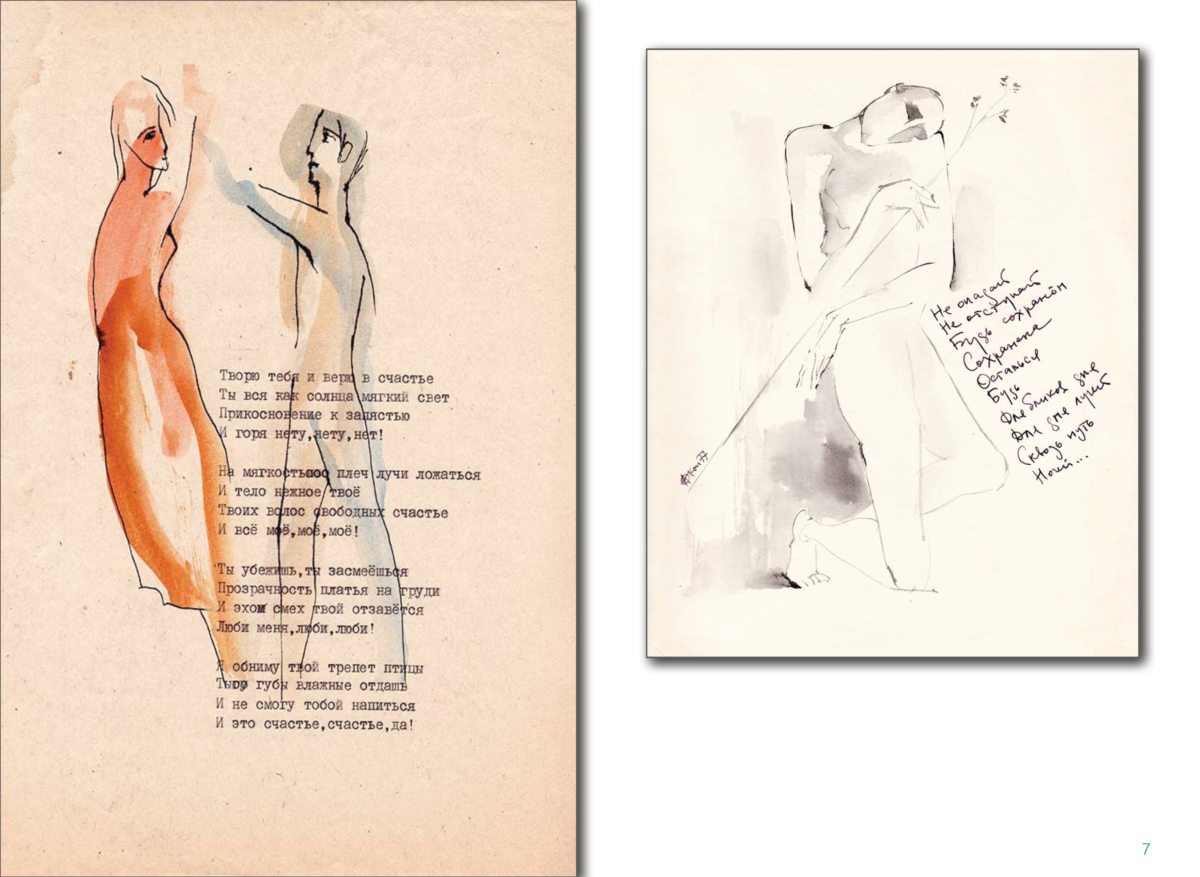 Творю тебя и верю в счастье
Ты вся как солнца мягкий свет
Прикосновение к запястью
И горя нету,нету,нет!
На мягкость плеч лучи ложаться
И тело нежное твоё
Твоих волос свободных счастье
И всё моё,моё,моё!
Ты убежишь,ты засмеёшься
Прозрачность платья на груди
И эхом смех твой отзавётся
Люби меня,люби,люби!
Я обниму твой трепет птицы
Ты губы влажные отдашь
И не смогу тобой напиться
И это счастье,счастье,да!
Не опадай
Не отступай
Будь сохранён
Сохранена
Останься
Будь
Для бликов дня
Для дня лучей
Сквозь путь
Ночей...
7